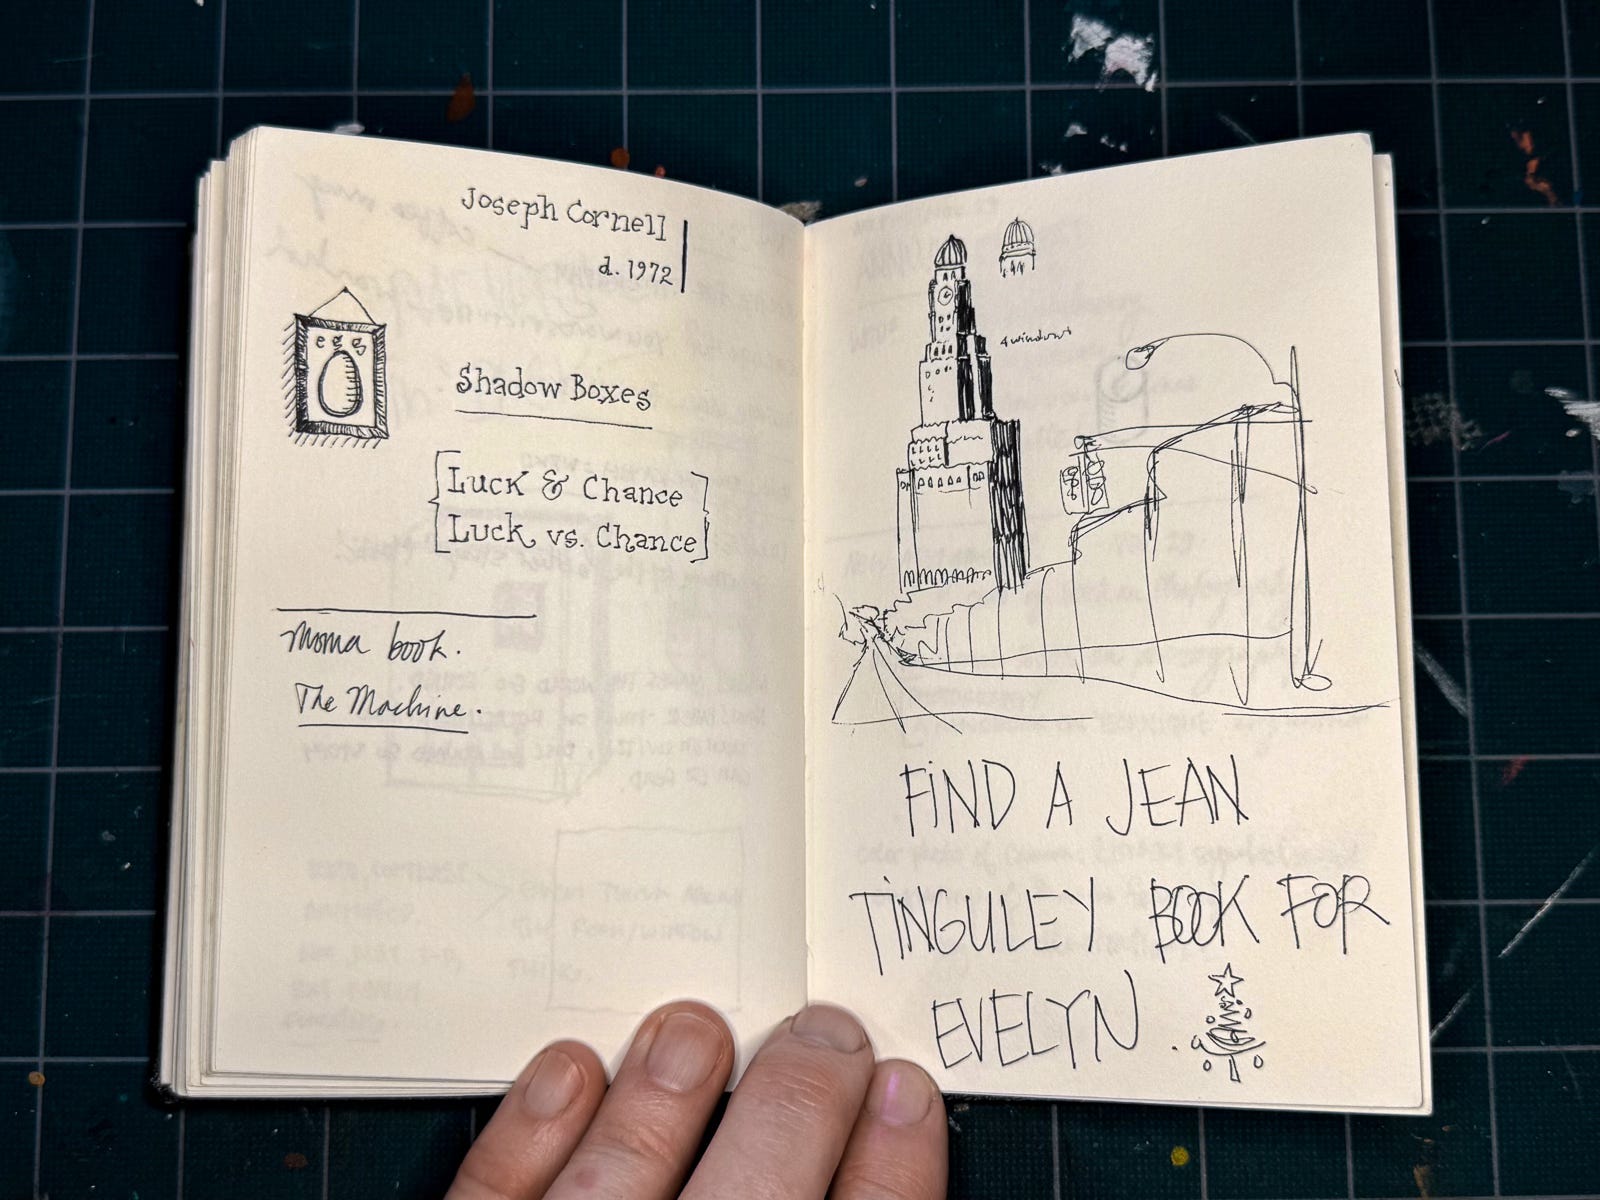 Joseph Cornell
d. 1972
egg
Shadow Boxes
Luck & Chance
Luck vs. Chance
Moma book.
The Machine.
4 windows
FIND A JEAN
TINGULEY BOOK FOR
EVELYN.